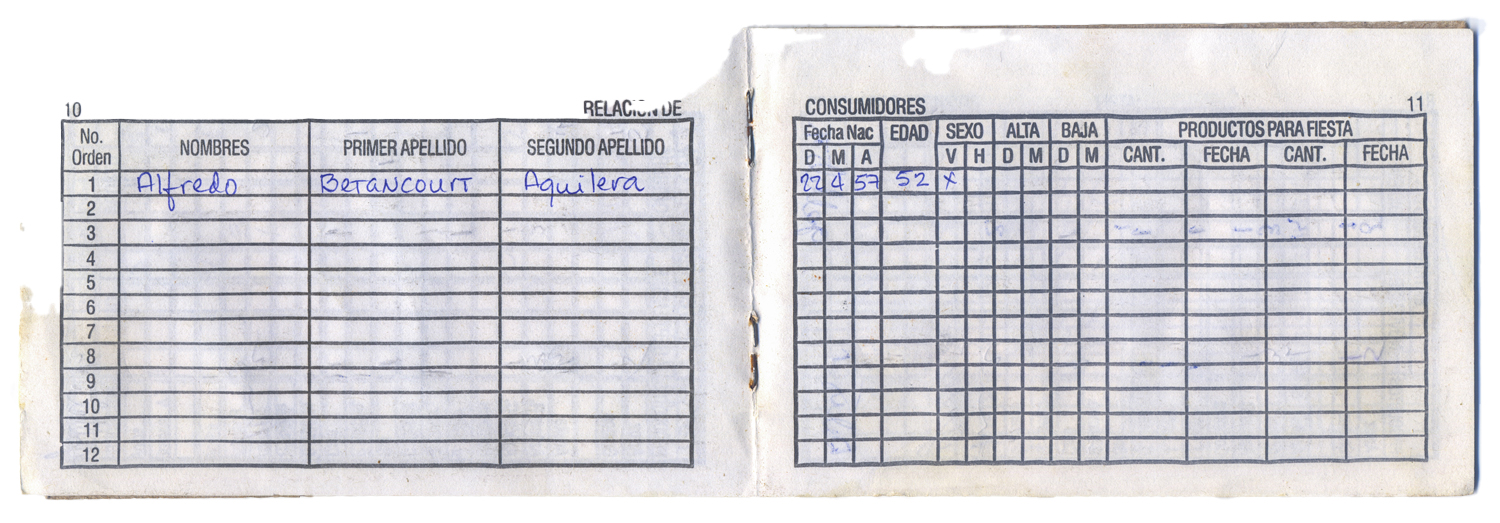 10 RELACIÓN DE
No. Orden NOMBRES PRIMER APELLIDO SEGUNDO APELLIDO
1 Alfredo Betancourt Aguilera
2
3
4
5
6
7
8
9
10
11
12
CONSUMIDORES 11
Fecha Nac EDAD SEXO ALTA BAJA PRODUCTOS PARA FIESTA
D M A V H D M D M CANT. FECHA CANT. FECHA
22 4 57 52 X